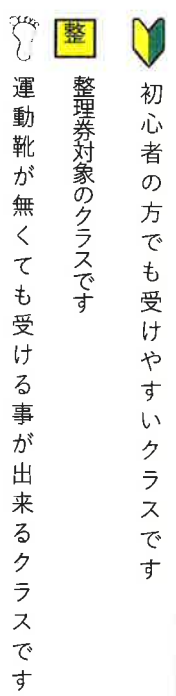 初心者の方でも受けやすいクラスです
整
整理券対象のクラスです
運動靴が無くても受ける事が出来るクラスです